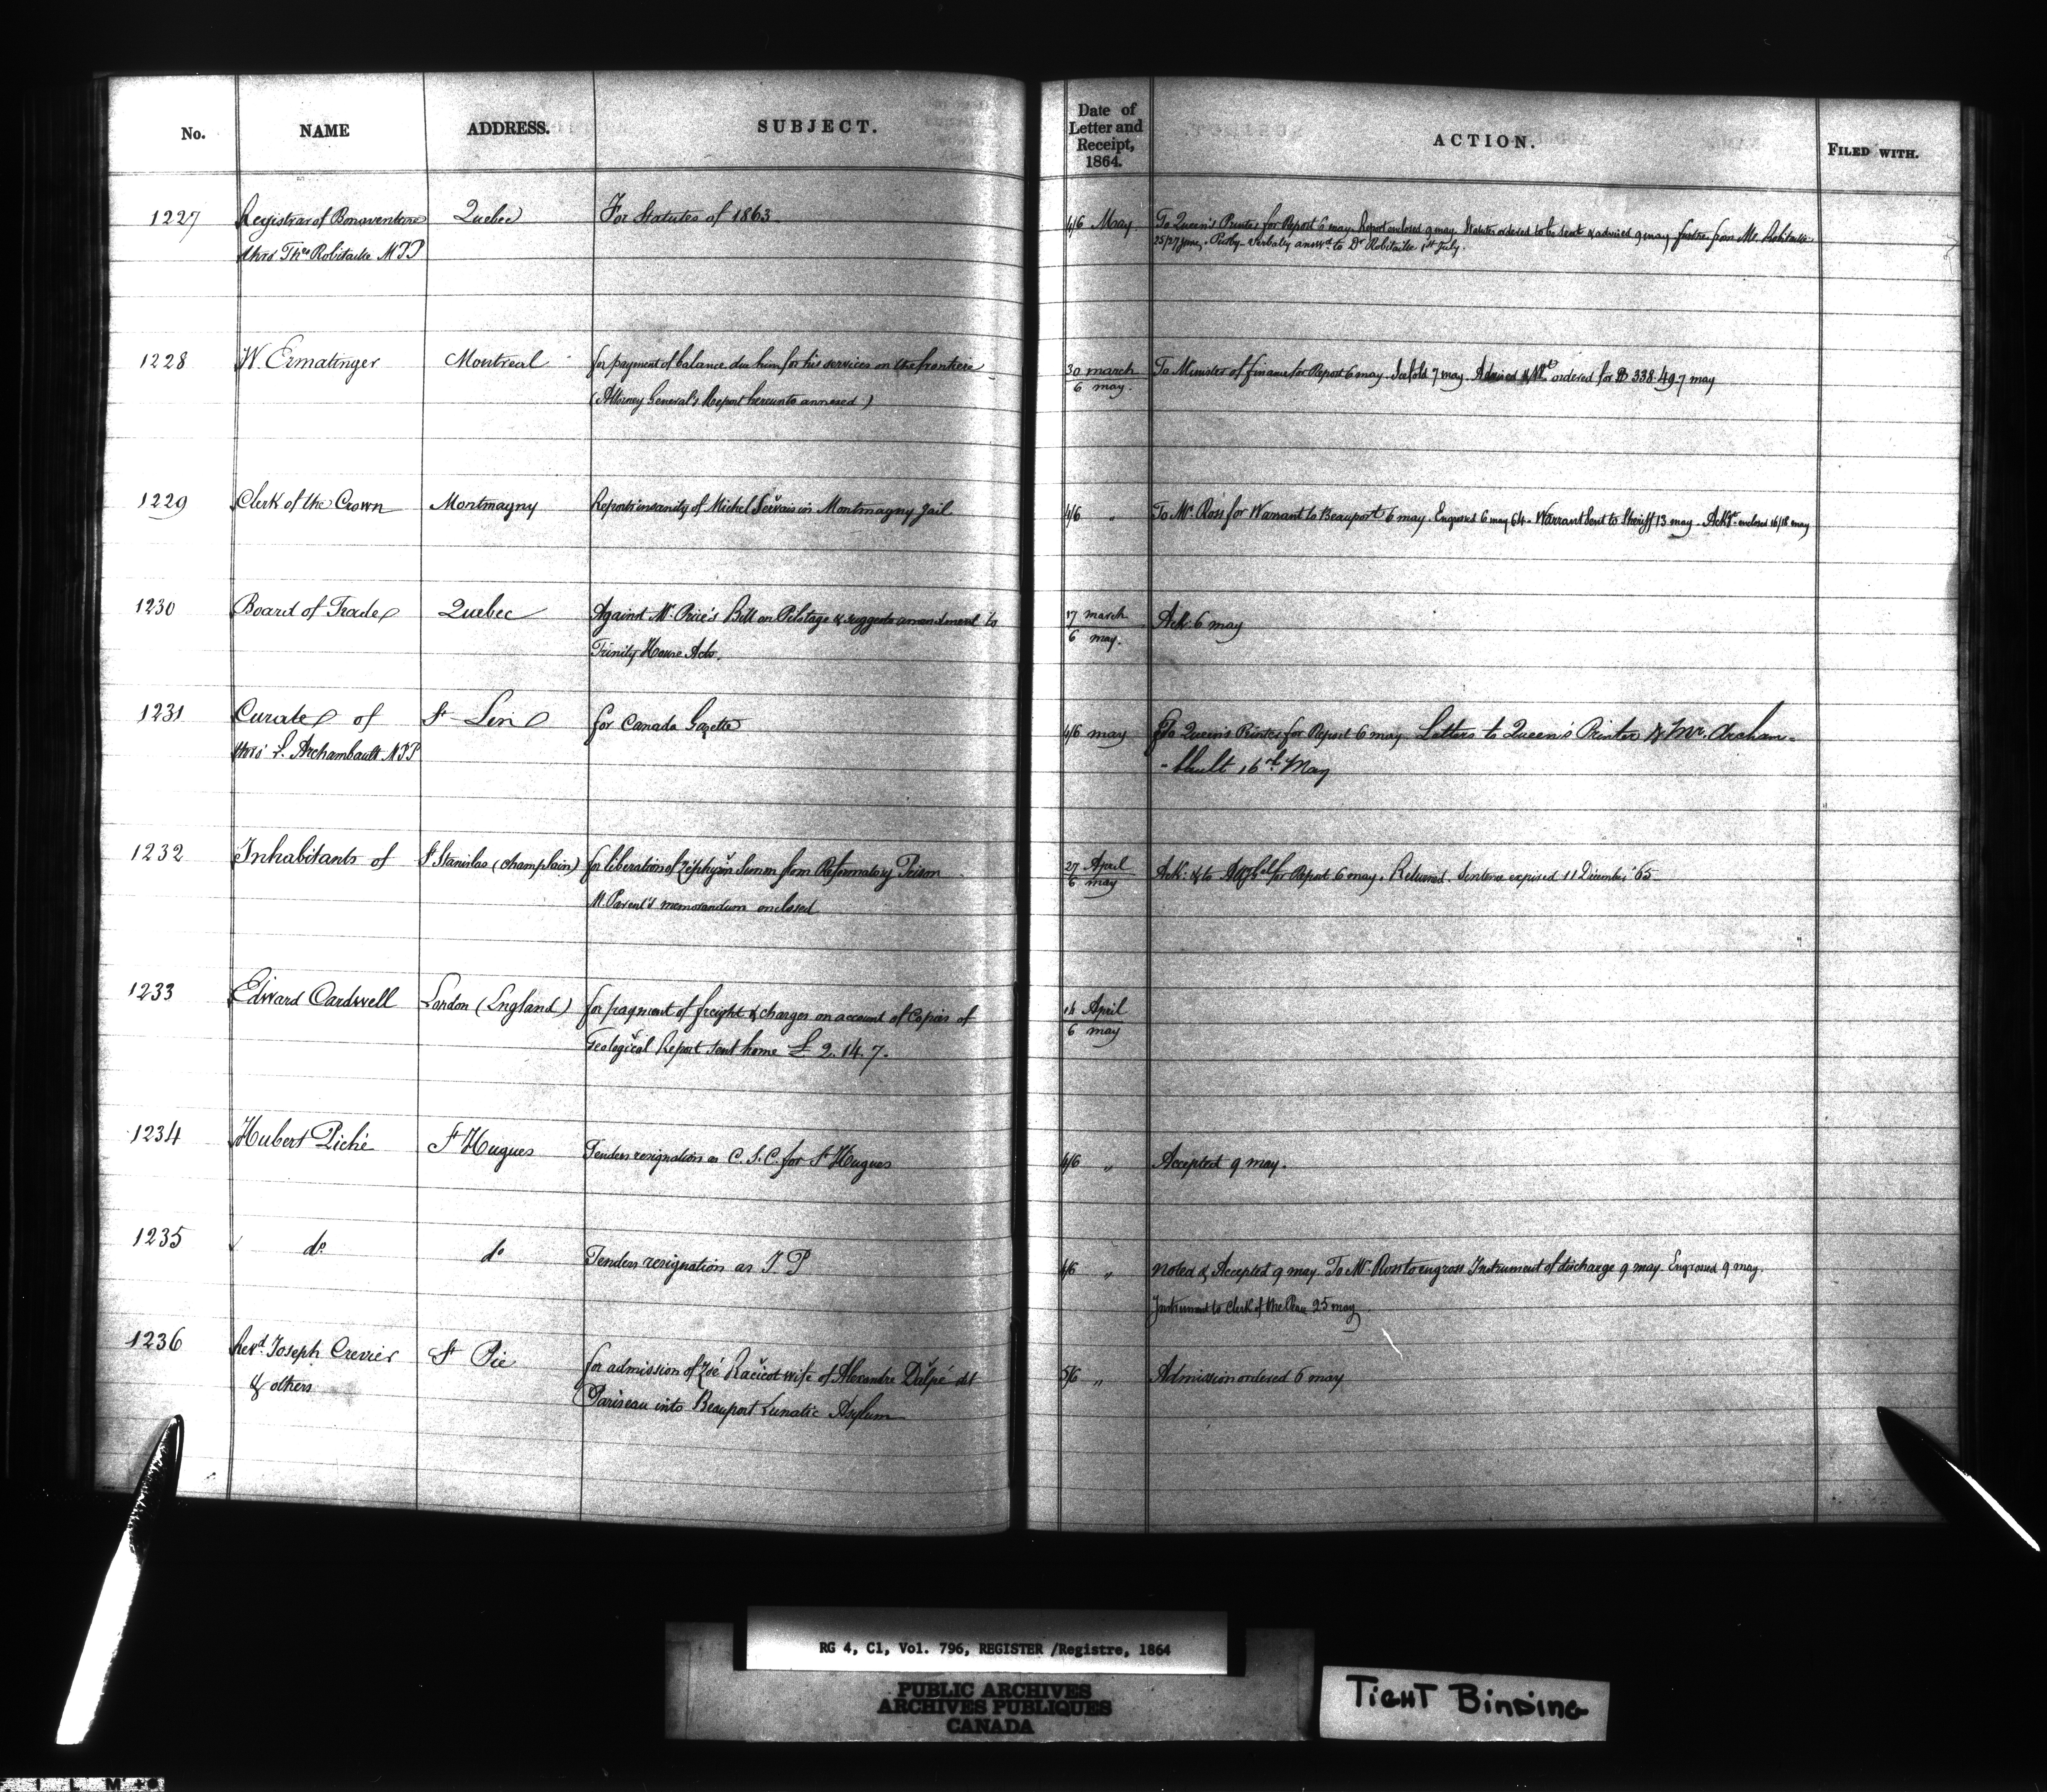 No. NAME ADDRESS. SUBJECT. Date of Letter and Receipt, 1864. ACTION. FILED WITH.
1227 Registrar of Bonaventure Quebec For Statutes of 1863 4/6 May. To Queen's Printer for Report 6 may. Report enclosed 9 may. Statutes ordered to be sent & advised 9 may further from Mr. Robitaille
thro' Ths Robitaille M.P.P 25/27 June, verbally answd to Dr Robitaille 1st July.
1228 W. Ermatinger Montreal for payment of balance due him for his services on the frontier 30 march To Minister of finance for Report 6 may. 7 may. Advised & Wt ordered for $ 338.49. 7 may
(Attorney General's Report hereunto annexed) 6 may.
1229 Clerk of the Crown Montmagny Reports insanity of Michel Servais in Montmagny Jail 4/6 " To Mr. Ross for Warrant to Beauport 6 may. Engrossed 6 may 64. Warrant sent to Sheriff 13 may. enclosed 16/18 may
1230 Board of Trade Quebec Against Mr Price's Bill on Pilotage & suggests amendment to 17 march Ack: 6 may
Trinity House Acts. 6 may.
1231 Curate of St Lin for Canada Gazette 4/6 may To Queen's Printer for Report 6 may. Letters to Queen's Printer & Mr. Archam=
thro' L. Archambault M.P.P -bault 16th May
1232 Inhabitants of St Stanislas (Champlain) for liberation of Zéphyrin from Reformatory Prison 27 April Ack: & to for Report 6 may. Returned. Sentence expired 11 December '65.
M. Parent's memorandum enclosed 6 may
1233 Edward Cardwell London (England) for payment of freight & charges on account of Copies of 14 April
Geological Report sent home £ 2. 14. 7. 6 may
1234 Hubert Piché St Hugues Tenders resignation as C.S.C. for St Hugues 4/6 " Accepted 9 may.
1235 do do Tenders resignation as J P 4/6 " Noted & Accepted 9 may. To Mr. Ross to engross Instrument of discharge 9 may. Engrossed 9 may.
Instrument to Clerk of the Peace 25 may.
1236 Revd. Joseph Crevier St Pie for admission of Zoé Racicot wife of Alexandre Dalpé dit 5/6 " Admission ordered 6 may
& others Pariseau into Beauport Lunatic Asylum
RG 4, C1, Vol. 796, REGISTER /Registre, 1864
PUBLIC ARCHIVES
ARCHIVES PUBLIQUES
CANADA
TIGHT BINDING